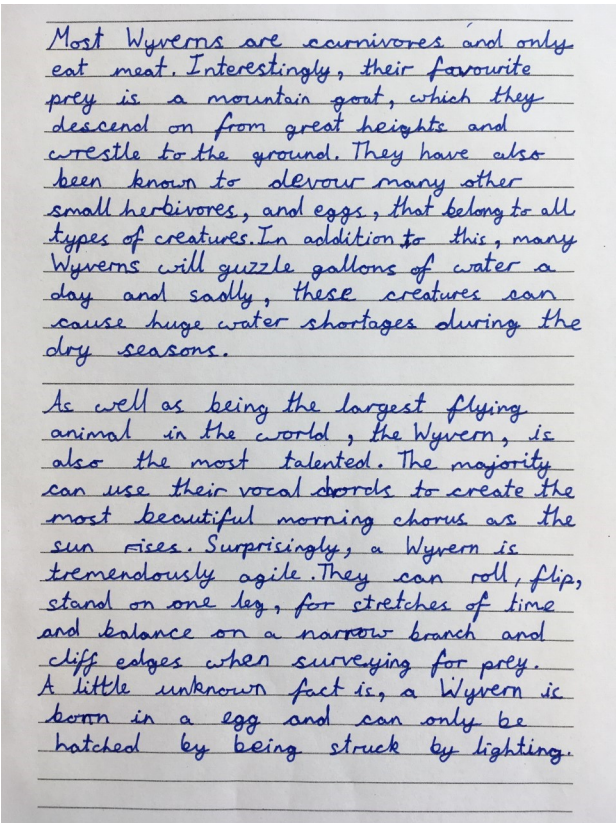 Most Wyverns are carnivores and only
eat meat. Interestingly, their favourite
prey is a mountain goat, which they
descend on from great heights and
wrestle to the ground. They have also
been known to devour many other
small herbivores, and eggs, that belong to all
types of creatures. In addition to this, many
Wyverns will guzzle gallons of water a
day and sadly, these creatures can
cause huge water shortages during the
dry seasons.

As well as being the largest flying
animal in the world, the Wyvern, is
also the most talented. The majority
can use their vocal chords to create the
most beautiful morning chorus as the
sun rises. Surprisingly, a Wyvern is
tremendously agile. They can roll, flip,
stand on one leg, for stretches of time
and balance on a narrow branch and
cliff edges when surveying for prey.
A little unknown fact is, a Wyvern is
born in a egg and can only be
hatched by being struck by lighting.